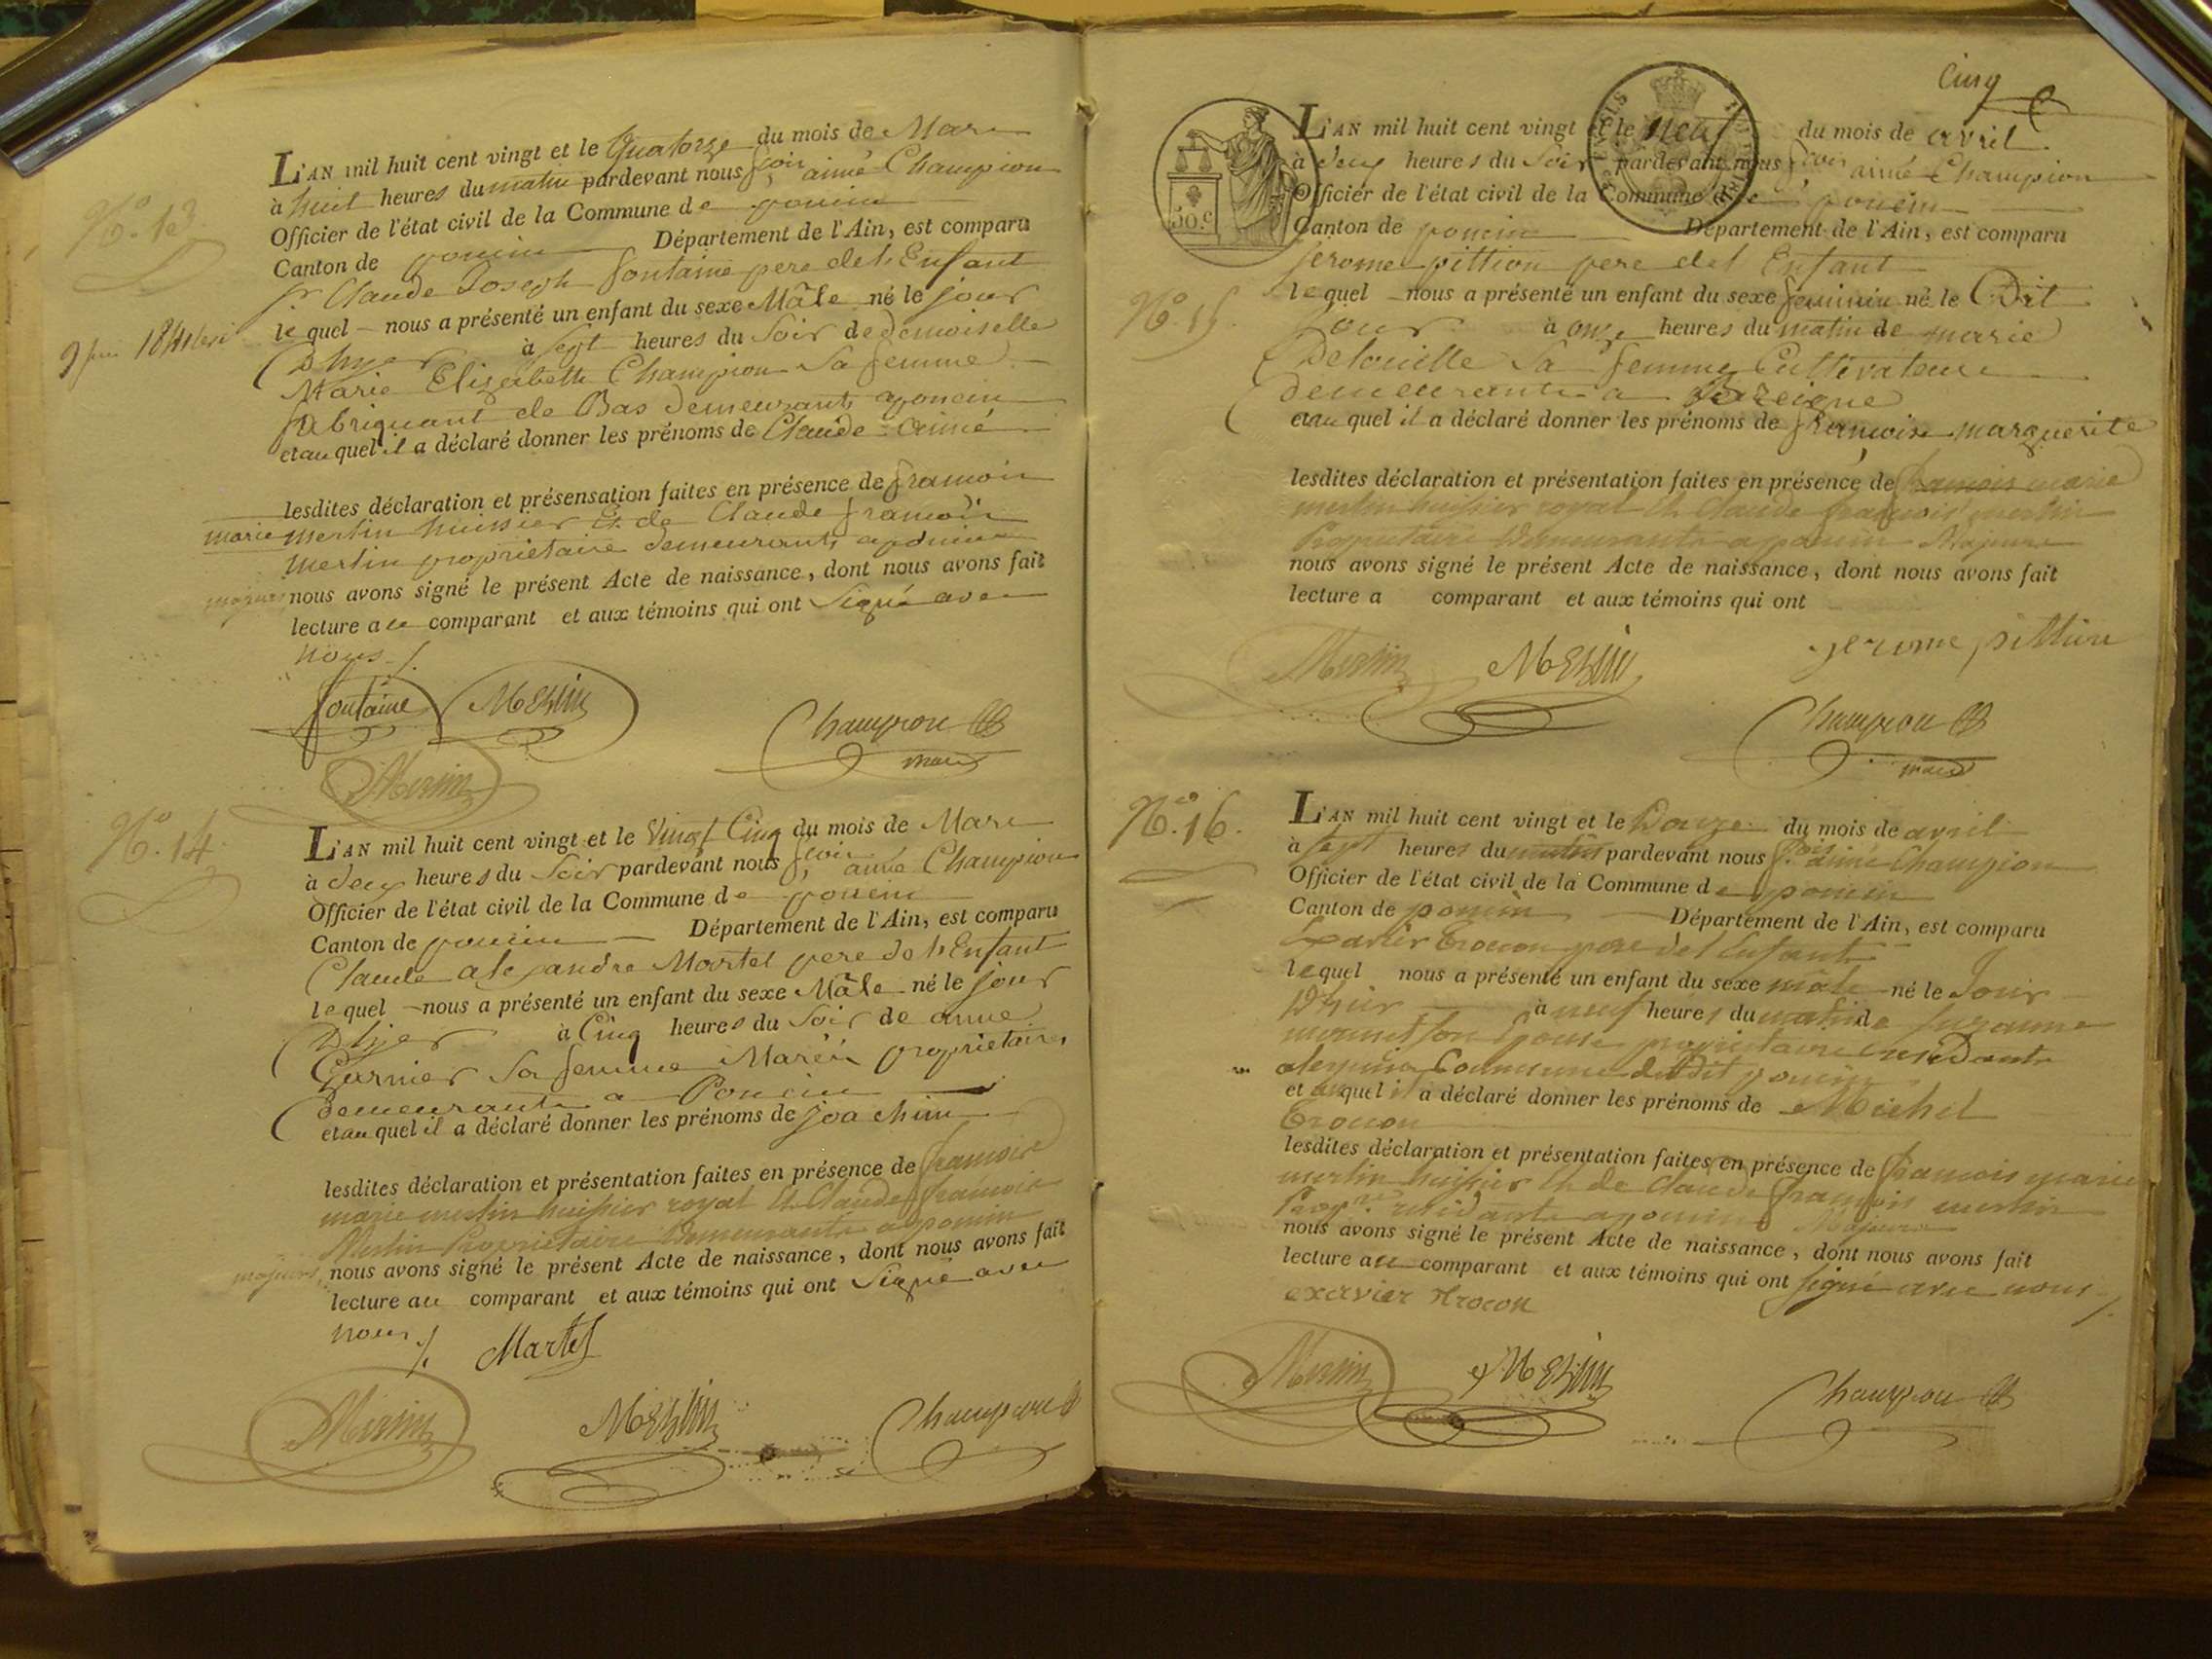 N.º 13.
L'AN mil huit cent vingt et le Quatorze du mois de Mars
à huit heures du matin pardevant nous fçois aimé Champion
Officier de l'état civil de la Commune de poncin
Canton de poncin Département de l'Ain, est comparu
sr Claude Joseph fontaine pere de l'Enfant
lequel nous a présenté un enfant du sexe Mâle né le jour
9 juin 1841
D'hyer à sept heures du Soir de demoiselle
Marie Elizabette Champion Sa femme
fabriquant de Bas demeurants a poncin
et au quel il a déclaré donner les prénoms de Claude aimé
lesdites déclaration et présensation faites en présence de francois
marie merlin huissier Et de Claude francois
merlin proprietaire demeurants a poncin
majeurs nous avons signé le présent Acte de naissance, dont nous avons fait
lecture au comparant et aux témoins qui ont Signé avec
nous
fontaine Merlin
Champion
maire
Merlin
N.º 14.
L'AN mil huit cent vingt et le Vingt Cinq du mois de Mars
à deux heures du Soir pardevant nous fçois aimé Champion
Officier de l'état civil de la Commune de poncin
Canton de poncin Département de l'Ain, est comparu
Claude alexandre Martel pere de l'Enfant
lequel nous a présenté un enfant du sexe Mâle né le jour
D'hyer à Cinq heures du Soir de anne
Garnier Sa femme proprietaires
demeurants a Poncin
et au quel il a déclaré donner les prénoms de joachim
lesdites déclaration et présentation faites en présence de francois
marie merlin huissier royal Et Claude francois
Merlin Proprietaire demeurants a poncin
majeurs, nous avons signé le présent Acte de naissance, dont nous avons fait
lecture au comparant et aux témoins qui ont Signé avec
nous Martel
Merlin Merlin Champion
Cinq
50.c
L'AN mil huit cent vingt et le neuf du mois de avril
à deux heures du Soir pardevant nous fçois aimé Champion
Officier de l'état civil de la Commune de poncin
Canton de poncin Département de l'Ain, est comparu
jerome pittion pere del Enfant
N.º 15.
lequel nous a présenté un enfant du sexe feminin né le Dit
jour à onze heures du matin de marie
Delouille Sa femme Cultivateurs
demeurants a
et au quel il a déclaré donner les prénoms de francoise marguerite
lesdites déclaration et présentation faites en présence de francois marie
merlin huissier royal Et Claude francois merlin
Proprietaire demeurants a poncin Majeurs
nous avons signé le présent Acte de naissance, dont nous avons fait
lecture a comparant et aux témoins qui ont
Merlin Merlin jerome pittion
Champion
maire
N.º 16.
L'AN mil huit cent vingt et le Douze du mois de avril
à sept heures du matin pardevant nous f.çois aimé Champion
Officier de l'état civil de la Commune de poncin
Canton de poncin Département de l'Ain, est comparu
Xavier Trocon pere de l Enfant
lequel nous a présenté un enfant du sexe mâle né le Jour
D'hier à neuf heures du matin de Suzanne
son Epouse proprietaire residants
Commune dudit poncin
et auquel il a déclaré donner les prénoms de Michel
Trocon
lesdites déclaration et présentation faites en présence de francois marie
merlin huissier Et de Claude francois merlin
Prop.re residants a poncin Majeurs
nous avons signé le présent Acte de naissance, dont nous avons fait
lecture au comparant et aux témoins qui ont signé avec nous
exavier trocon
Merlin Merlin Champion